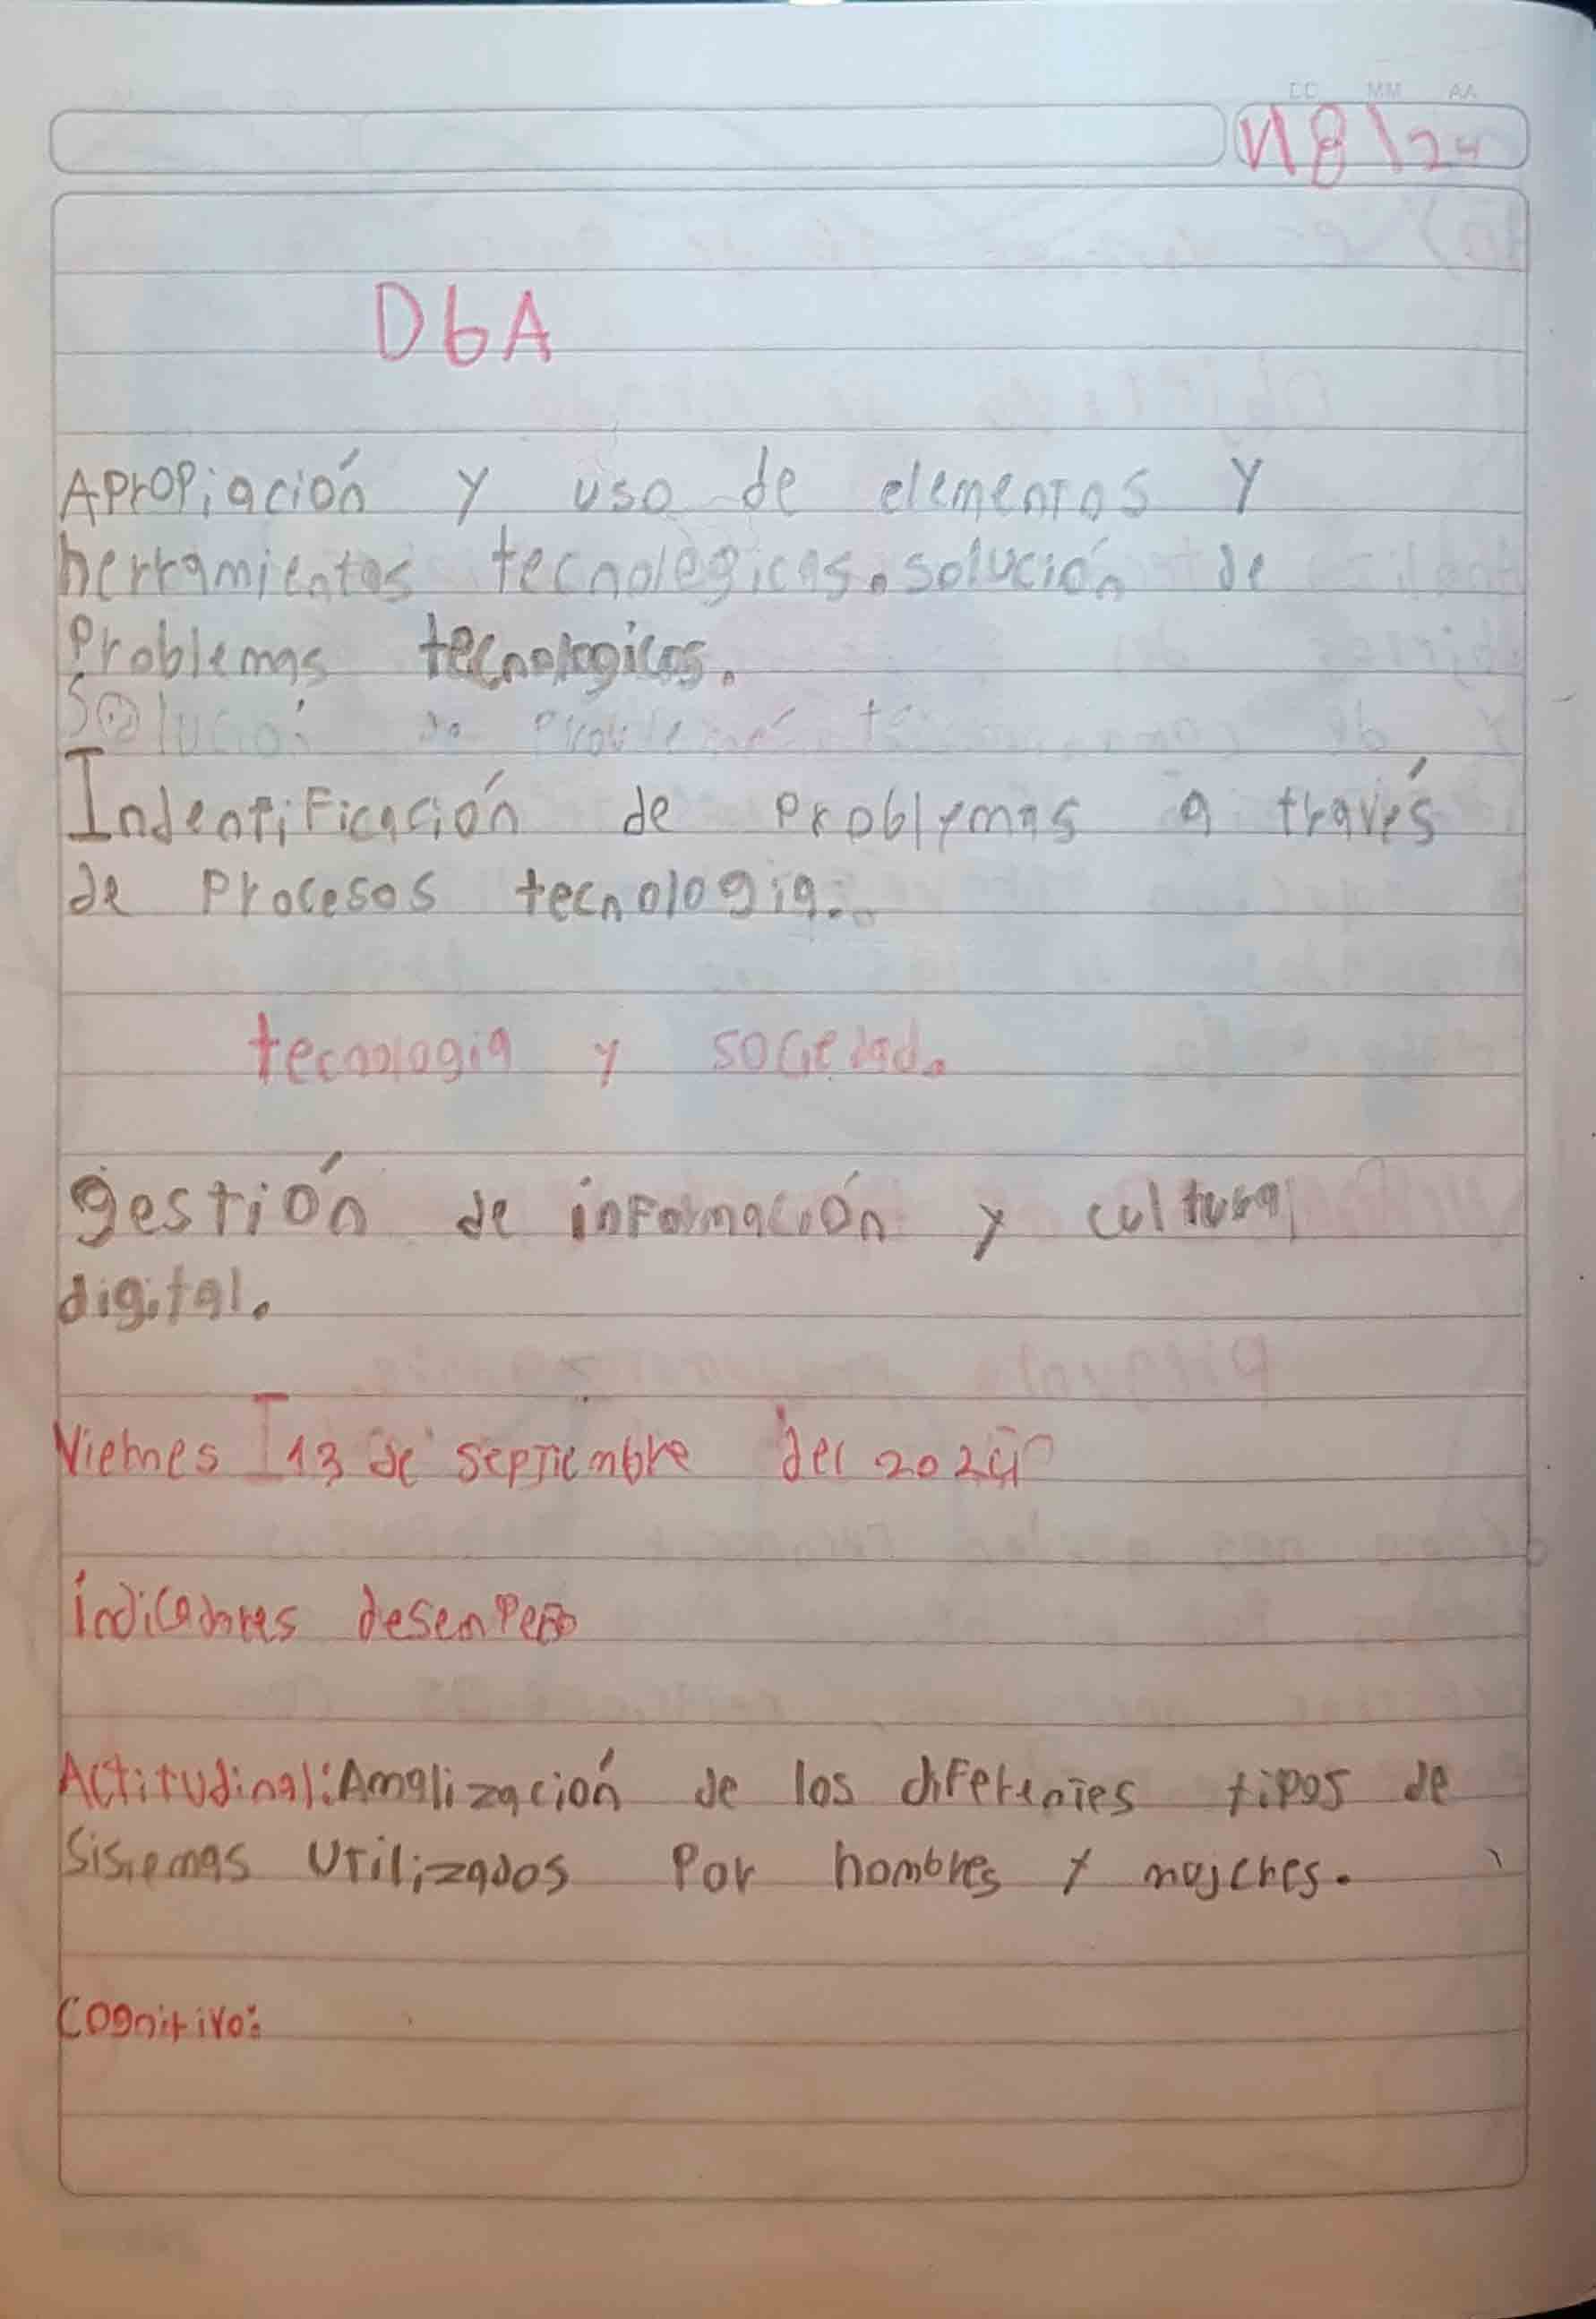 DD MM AA
DbA
Apropiación y uso de elementos y
herramientas tecnológicas. solución de
Problemas tecnologicos.
Indentificación de problemas a través
de procesos tecnologia.
tecnologia y sociedad.
gestión de información y cultural
digital.
Viernes 13 de septiembre del 2024
indicadores desempeño
Actitudinal: Amalización de los diferentes tipos de
Sistemas utilizados Por hombres y mujeres.
Cognitivo: